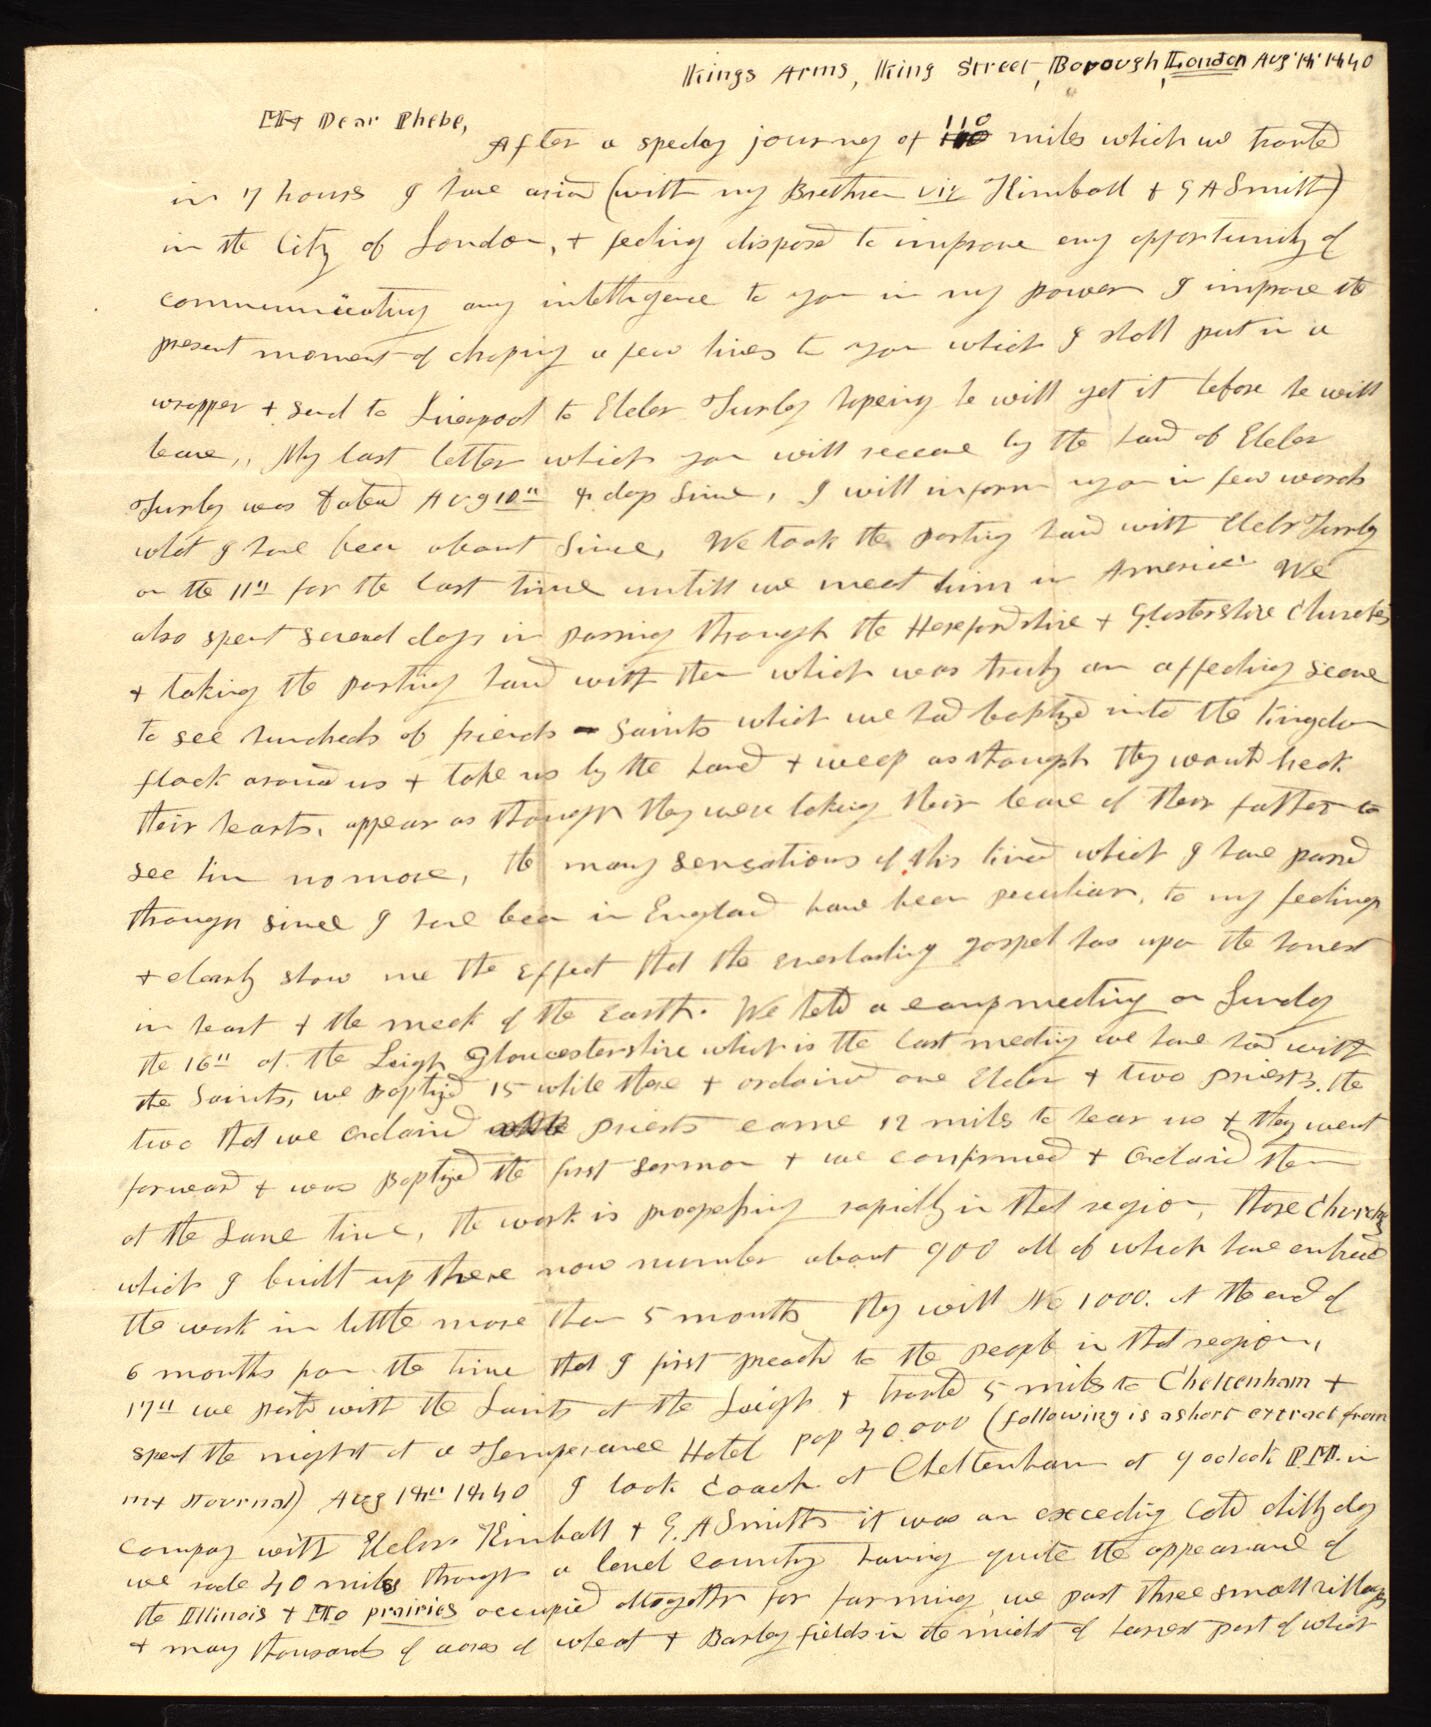 Kings Arms, King Street, Borough, London Aug 18 1840
My Dear Phebe,
After a spedy journey of 110 miles which we traveled
in 7 hours I have arived (with my Brethren viz Kimball & G A Smith)
in the City of London, & feeling disposed to improve evry opportunity of
communicating any intelligence to you in my power I improve the
present moment of droping a few lines to you which I shall put in a
wrapper & send to Liverpool to Elder Turley hopeing he will get it before he will
leave,, My last letter which you will receive by the hand of Elder
Turley was dated Aug 10th 8 days since, I will inform you in few words
what I have been about since, We took the parting hand with Elder Turley
on the 11th for the last time untill we meet him in America We
also spent several days in passing through the Herefordshire & Glostershire Churches
& taking the parting hand with them which was truly an affecting scene
to see hundreds of friends - Saints which we had baptized into the kingdom
flock around us & take us by the hand & weep as though they would break
their hearts, appear as though they were taking their leave of their father to
see him no more, the many sensations of this kind which I have passed
through since I have been in England have been peculiar, to my feelings
& clearly show me the effect that the everlasting gospel has upon the honest
in heart & the meek of the earth. We held a campmeeting on Sunday
the 16th at the Leigh Gloucestershire which is the last meeting we have had with
the Saints, we Baptized 15 while there & ordained one Elder & two priests. the
two that we ordained priests came 12 miles to hear us & they went
forward & was Baptized the first sermon & we confirmed & ordained them
at the same time, the work is progressing rapidly in that region, those Churches
which I built up there now number about 900 all of which have entered
the work in little more than 5 months they will No 1000. at the end of
6 months from the time that I first preached to the people in that region,
17th we parted with the Saints at the Leigh & traveled 5 miles to Cheltenham &
spent the night at a Temperance Hotel pop 40.000 (following is a short extract from
my Journal) Aug 18th 1840 I took Coach at Cheltenham at 9 oclock P.M. in
company with Elders Kimball & G. A Smith it was an exceding cold chilly day
we rode 40 miles through a level country having quite the appearance of
the Illinois & Mo prairies occupied altogether for farming we past three small villages
& many thousands of acres of wheat & Barley fields in the midst of harvest part of which